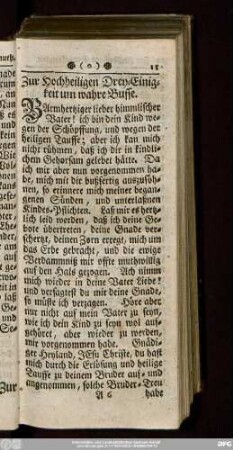 (0) 11
Zur Hochheiligen Drey-Einig-
keit um wahre Busse.
BArmhertziger lieber himmlischer
Vater! ich bin dein Kind we-
gen der Schöpffung, und wegen der
heiliger Tauffe; aber ich kan mich
nicht rühmen, daß ich dir in kindli-
chem Gehorsam gelebet hätte. Da
ich mir aber nun vorgenommen ha-
be, mich mit dir bußfertig auszusöh-
nen, so erinnere mich meiner began-
genen Sünden, und unterlaßnen
Kindes-Pflichten. Laß mir es hertz-
lich leid werden, daß ich deine Ge-
bote übertreten, deine Gnade ver-
schertzt, deinen Zorn erregt, mich um
das Erbe gebracht, und die ewige
Verdammniß mir offte muthwillig
auf den Hals gezogen. Ach nimm
mich wieder in deine Vater Liebe!
und versagest du mir deine Gnade,
so müste ich verzagen. Höre aber
nur nicht auf mein Vater zu seyn,
wie ich dein Kind zu seyn wol auf-
gehöret, aber wieder zu werden,
mir vorgenommen habe. Gnädi-
ger Heyland, JEsu Christe, du hast
mich durch die Erlösung und heilige
Tauffe zu deinem Bruder auf- und
angenommen, solche Bruder-Treu
A 6 habe
Zur